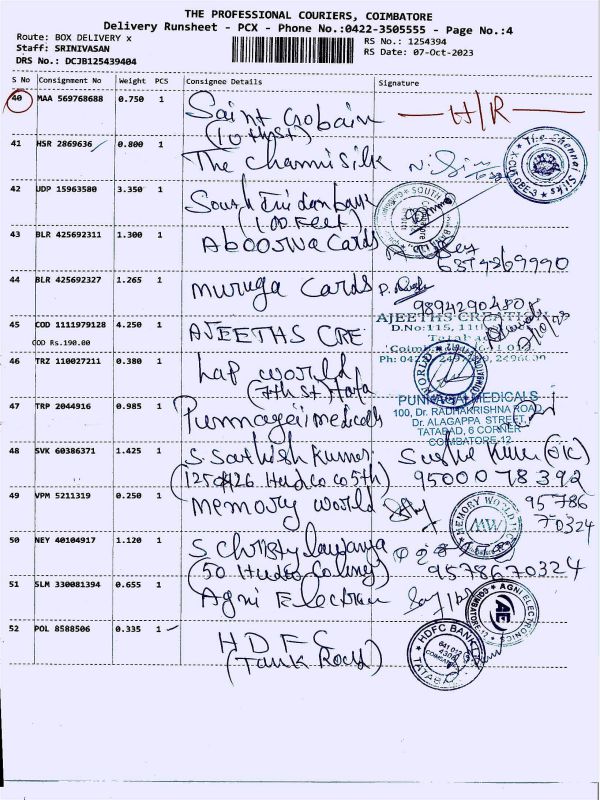 THE PROFESSIONAL COURIERS, COIMBATORE
Delivery Runsheet - PCX - Phone No.:0422-3505555 - Page No.:4
Route: BOX DELIVERY x
Staff: SRINIVASAN
DRS No.: DCJB125439404
RS No.: 1254394
RS Date: 07-Oct-2023
S No Consignment No Weight PCS Consignee Details Signature
40 MAA 569768688 0.750 1 Saint Gobain
(10th st)
H/R
41 HSR 2869636 0.800 1 The Channi Silk
The Chennai Silks
42 UDP 15963580 3.350 1 South Indan bank
(100 Feet)
SOUTH
43 BLR 425692311 1.300 1 Aboorva Cards
6374369990
44 BLR 425692327 1.265 1 Muruga Cards
9894290480
45 COD 1111979128 4.250 1 AJEETHS CRE
COD Rs.190.00
AJEETHS CREATI
D.No:115, 11th
46 TRZ 110027211 0.380 1 Lap world
(7th st Tata
WORLD
47 TRP 2044916 0.985 1 Punnagai medicals
PUNNAGAI MEDICALS
100, Dr. RADHAKRISHNA ROAD,
Dr. ALAGAPPA STREET,
TATABAD, 6 CORNER
COIMBATORE-12
48 SVK 60386371 1.425 1 S Sathish Kumar
95000 78392
49 VPM 5211319 0.250 1 Memory world
MEMORY WORLD
MW
95786
70324
50 NEY 40104917 1.120 1 S Christy
(50 Hudco Coliney)
9578670324
51 SLM 330081394 0.655 1 Agni Electran
AGNI ELECTRONICS
AE
52 POL 8588506 0.335 1 HDFC
(Tank Rock)
HDFC BANK
TATABAD